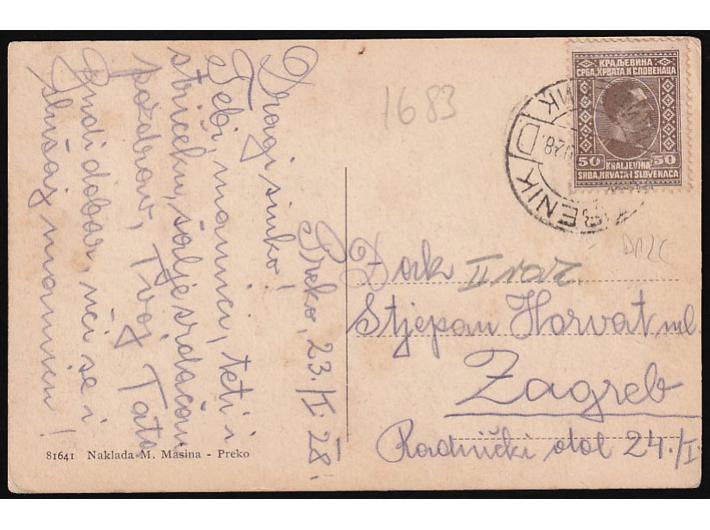 Preko, 23./I 28.
Dragi sinko!
Tebi, mamici, teti i
striceku, šalje srdačan
pozdrav, Tvoj Tata
Budi dobar, uči se i
slušaj mamicu!
1683
КРАЉЕВИНА
СРБА, ХРВАТА И СЛОВЕНАЦА
50 KRALJEVINA 50
SRBA, HRVATA I SLOVENACA
ŠIBENIK
Đork II raz.
Stjepan Horvat ml.
Zagreb
Radnički dol 24./I
81641 Naklada M. Mašina - Preko